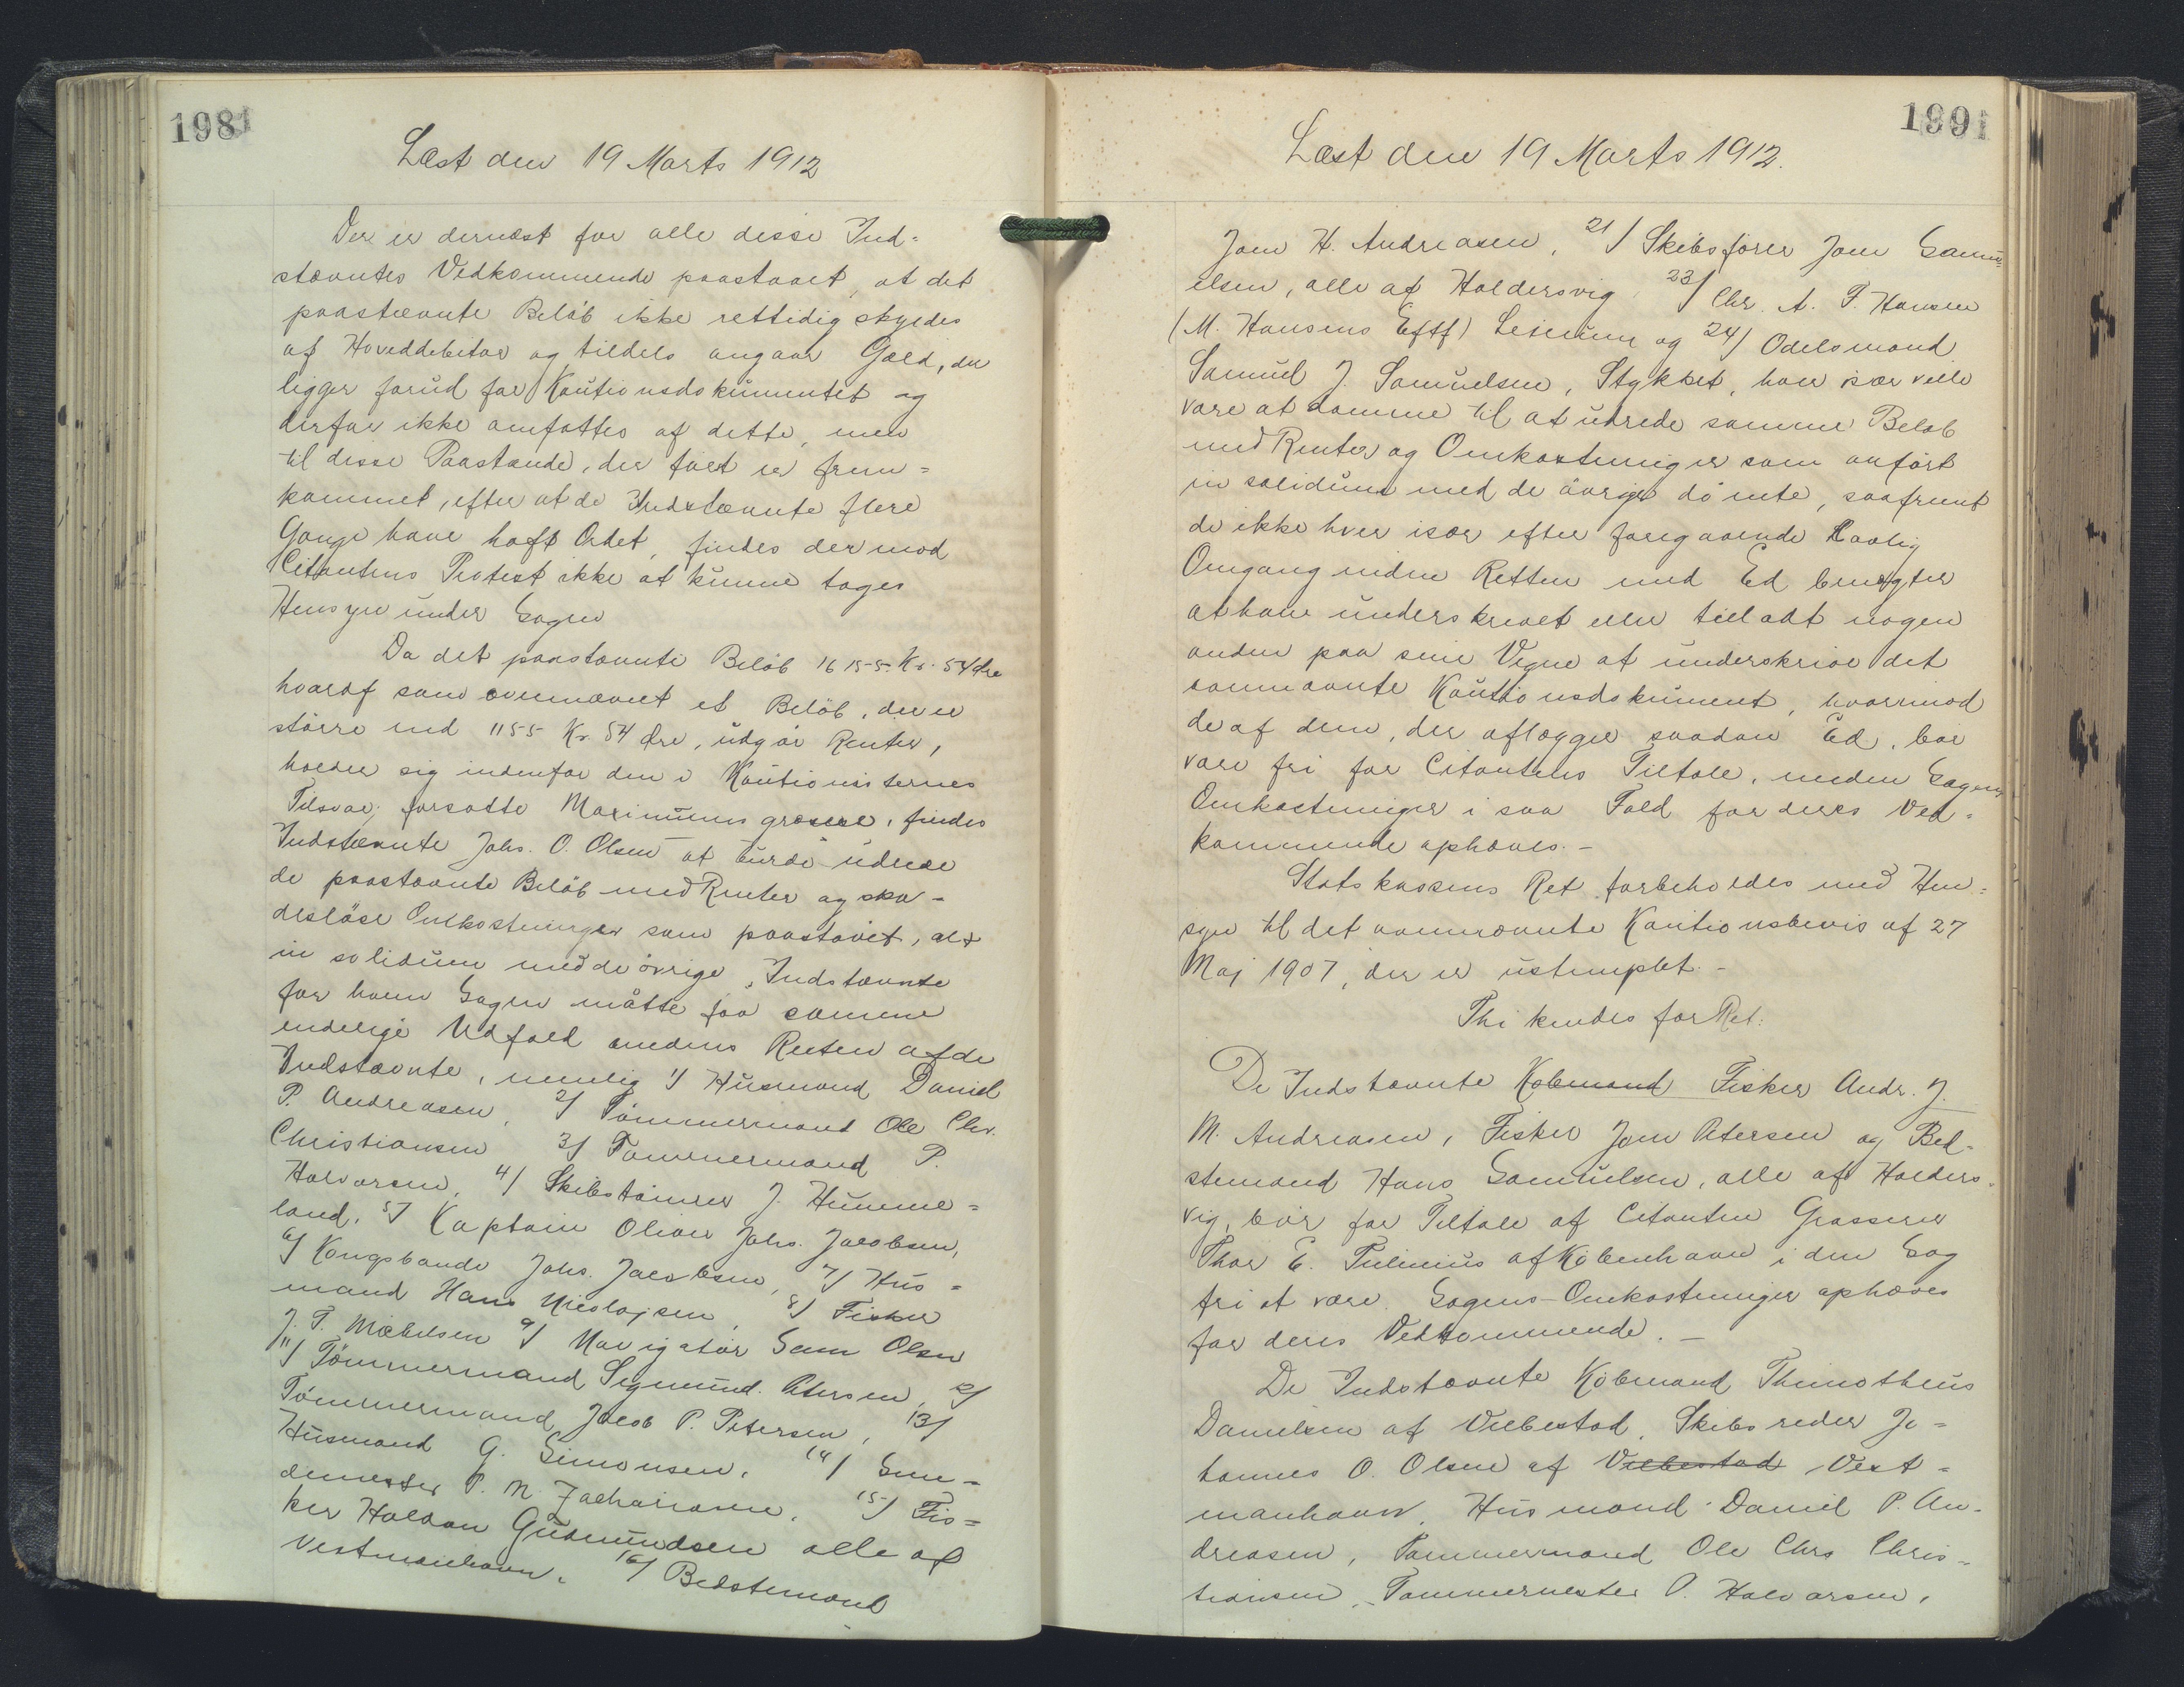 198
Læst den 19 Marts 1912
Der er dernæst for alle disse Ind-
stævntes Vedkommende paastaaet, at det
paastævnte Beløb ikke rettidig skyldes
af Hoveddebitor og tildels angaar Gæld, der
ligger forud for Kautionsdokumentet og
derfor ikke omfattes af dette, men
til disse Paastande, der først er frem-
kommet, efter at de Indstævnte flere
Gange have haft Ordet, findes der mod
Citantens Protest ikke at kunne tages
Hensyn under Sagen
Da det paastævnte Beløb 1615-5. Kr. 54 Øre
hvoraf som ovennævnt et Beløb, der er
större end 1155 Kr. 54 Øre, udgör Renter,
holder sig indenfor den i Kautionisternes
Tilsvar, forsatte Maximumsgrænse, findes
Indstævnte Johs. O. Olsen at burde udrede
de paastævnte Beløb med Renter og ska-
deslöse Omkostninger som paastaaet, alt
in solidum med de övrige Indstævnte
for hvem Sagen måtte faa samme
endelige Udfald medens Resten af de
Indstævnte, nemlig 1/ Husmand Daniel
P. Andreasen, 2/ Tömmermand Ole Chr.
Christiansen 3/ Tömmermand P.
Halvorsen, 4/ Skibstömrer J. Humme-
land, 5/ Kaptain Oliver Johs. Jacobsen,
6/ Kongsbonde Johs. Jacobsen, 7/ Hus-
mand Hans Nicolajsen, 8/ Fisker
J. T. Mikkelsen 9/ Navigatör Sam Olsen
11/ Tömmermand Segmund. Petersen, 12/
Tömmermand Jacob P. Petersen, 13/
Husmand G. Simonsen, 14/ Sme-
demester P. M. Zachariasen, 15/ Fis-
ker Haldan Gudmundsen alle af
Vestmanhavn. 16/ Bedstemand
199
Læst den 19 Marts 1912.
Joen H. Andreasen, 21/ Skibsförer Joen Samu-
elsen, alle af Haldersvig 23/ Chr. A. F. Hansen
(M. Hansens Eftf) Leinum og 24/ Odelsmand
Samuel J. Samuelsen, Stykket, hver især ville
være at dømme til at udrede samme Beløb
med Renter og Omkostninger som anfört
in solidum med de övrige dömte, saafremt
de ikke hver især efter foregaaende Lavlig
Omgang inden Retten med Ed benægter
at have underskrevet eller tilladt nogen
anden paa sine Vegne at underskrive det
ommeldte Kautionsdokument, hvorimod
de af dem, der aflægger saadan Ed, bör
være fri for Citantens Tiltale, meden Sagens
Omkostninger i saa Fald for deres Ved-
kommende ophæves. -
Statskassens Ret forbeholdes med Hen-
syn til det ovennævnte Kautionsbevis af 27
Maj 1907, der er ustemplet. -
Thi kendes for Ret:
De Indstævnte Købmand Fisker Andr. J.
M. Andreasen, Fisker Joen Petersen og Bed-
stemand Hans Samuelsen, alle af Halders-
vig, bör for Tiltale af Citanten Grosserer
Thor E. Tulinius af København i den Sag
fri at være. Sagens Omkostninger ophæves
for deres Vedkommende. -
De Indstævnte Købmand Thimotheus
Danielsen af Velbestad, Skibsreder Jo-
hannes O. Olsen af Velbestad Vest-
manhavn, Husmand Daniel P. An-
dreasen, Tømmermand Ole Chrs Chris-
tiansen, Tømmermester P. Halvorsen,